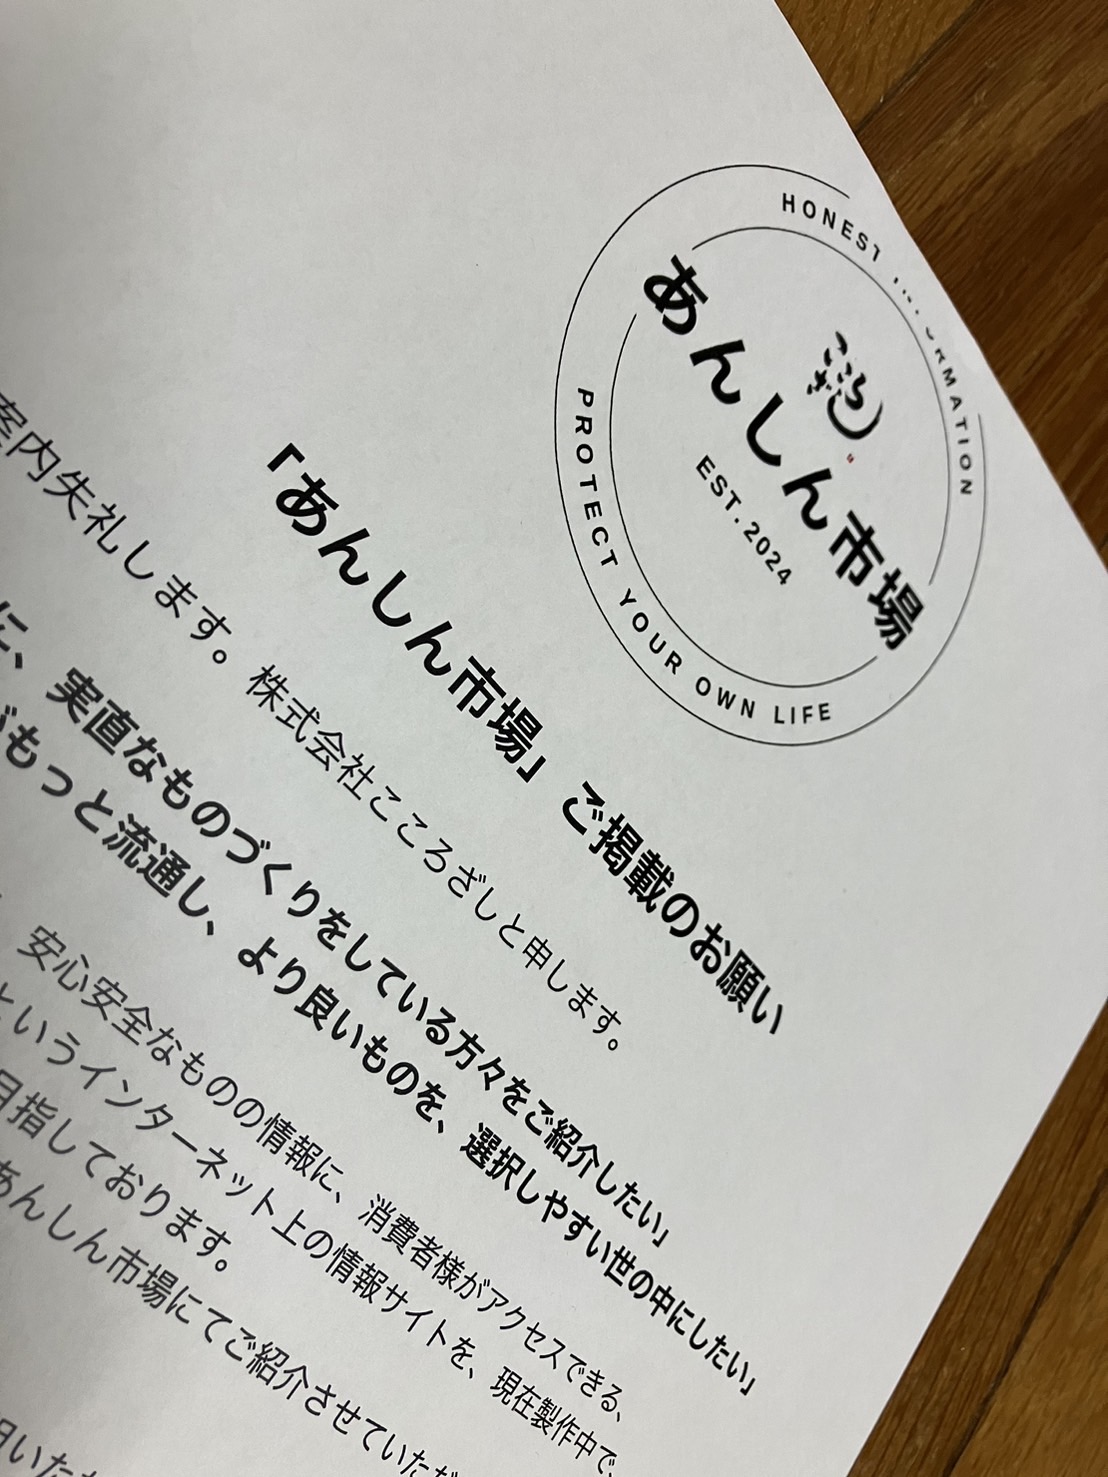 HONEST INFORMATION
こころざし
あんしん市場
EST.2024
PROTECT YOUR OWN LIFE
「あんしん市場」ご掲載のお願い
案内失礼します。株式会社こころざしと申します。
に、実直なものづくりをしている方々をご紹介したい」
がもっと流通し、より良いものを、選択しやすい世の中にしたい」
安心安全なものの情報に、消費者様がアクセスできる、
というインターネット上の情報サイトを、現在製作中で、
目指しております。
あんしん市場にてご紹介させていただ
用いただ